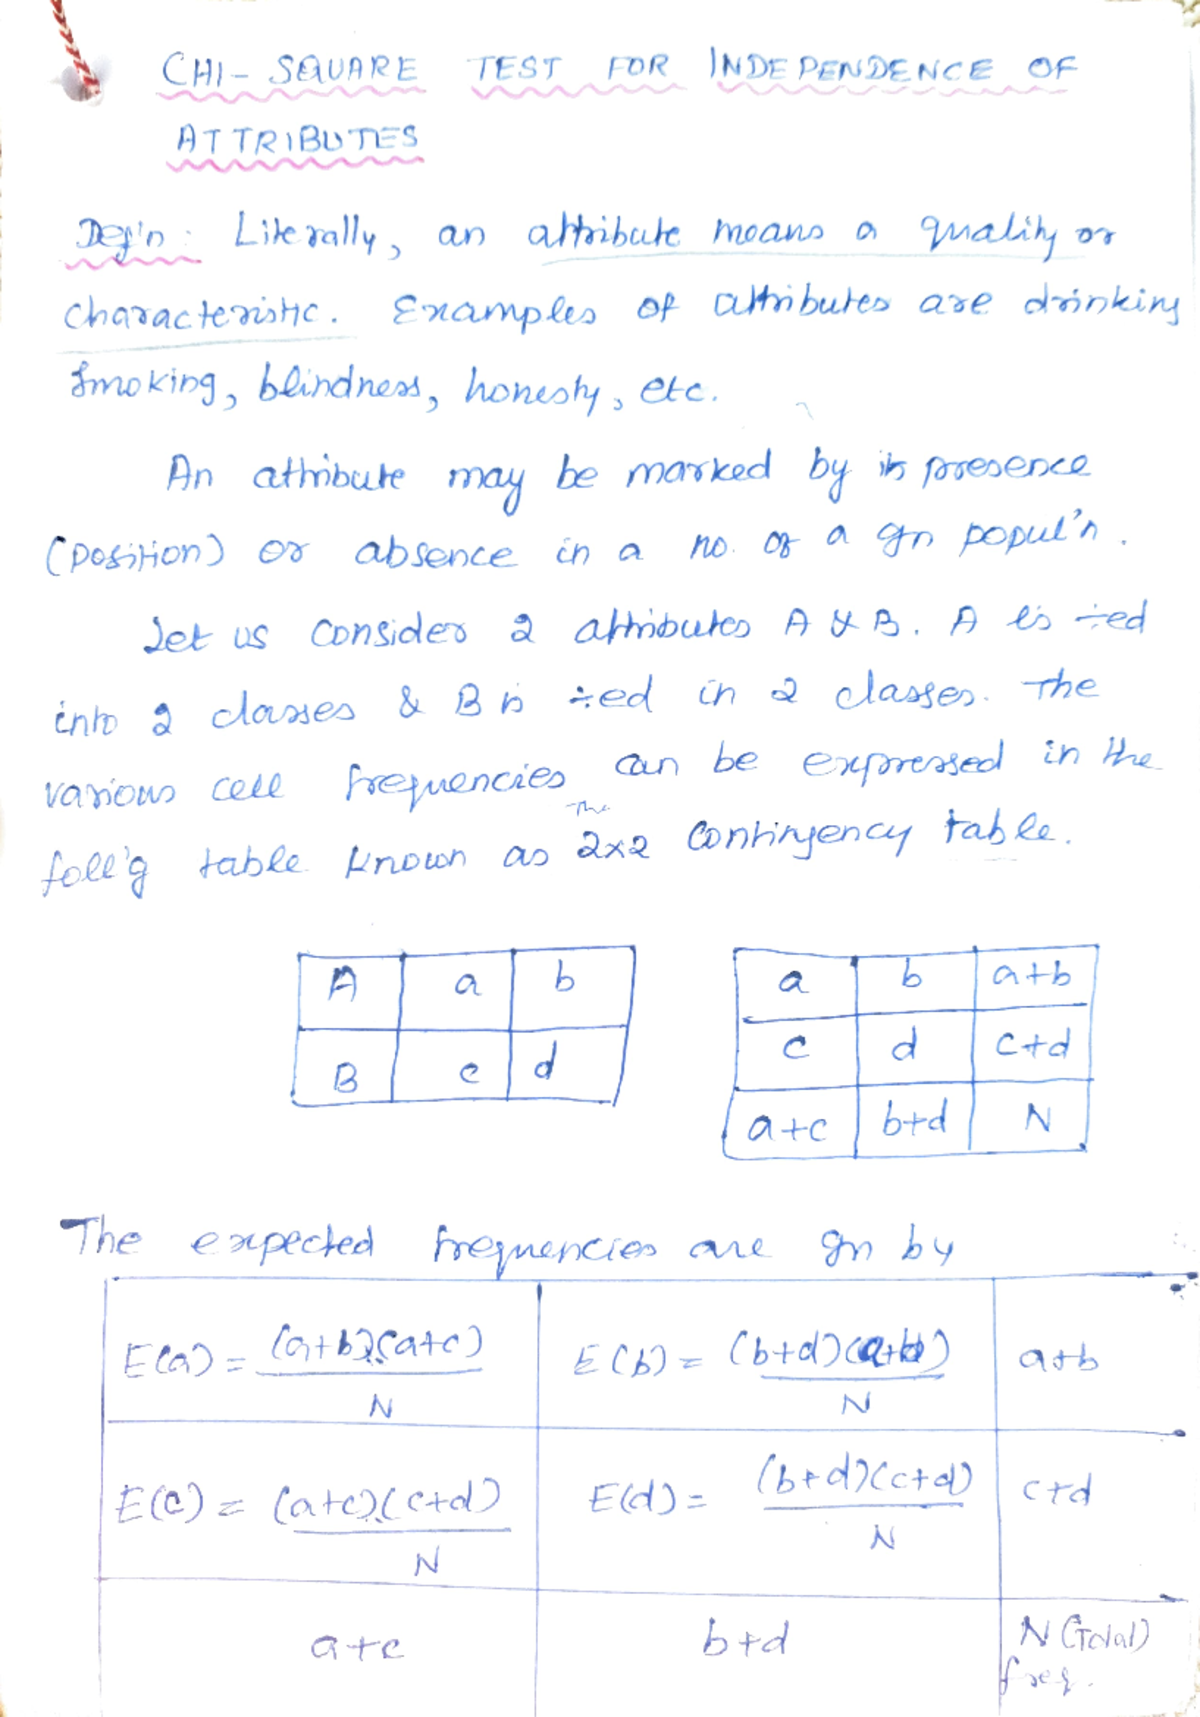 CHI-SQUARE TEST FOR INDEPENDENCE OF
ATTRIBUTES
Def'n: Literally, an attribute means a quality or
characteristic. Examples of attributes are drinking
Smoking, blindness, honesty, etc.
An attribute may be marked by its presence
(position) or absence in a no. of a gn popul'n.
Let us consider 2 attributes A & B. A is ÷ed
into 2 classes & B is ÷ed in 2 classes. The
various cell frequencies can be expressed in the
The
foll'g table known as 2×2 Contingency table.
A a b
B c d
a b a+b
c d c+d
a+c b+d N
The expected frequencies are gn by
E(a) = (a+b)(a+c) / N E(b) = (b+d)(a+b) / N a+b
E(c) = (a+c)(c+d) / N E(d) = (b+d)(c+d) / N c+d
a+c b+d N (Total)
freq.